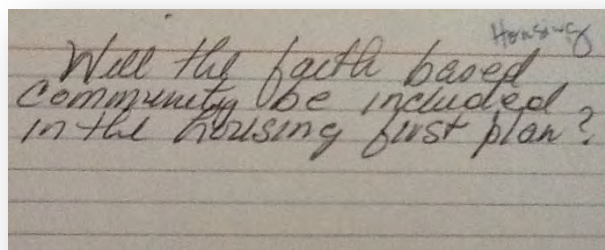 Housing
Will the faith based
community be included
in the housing first plan?